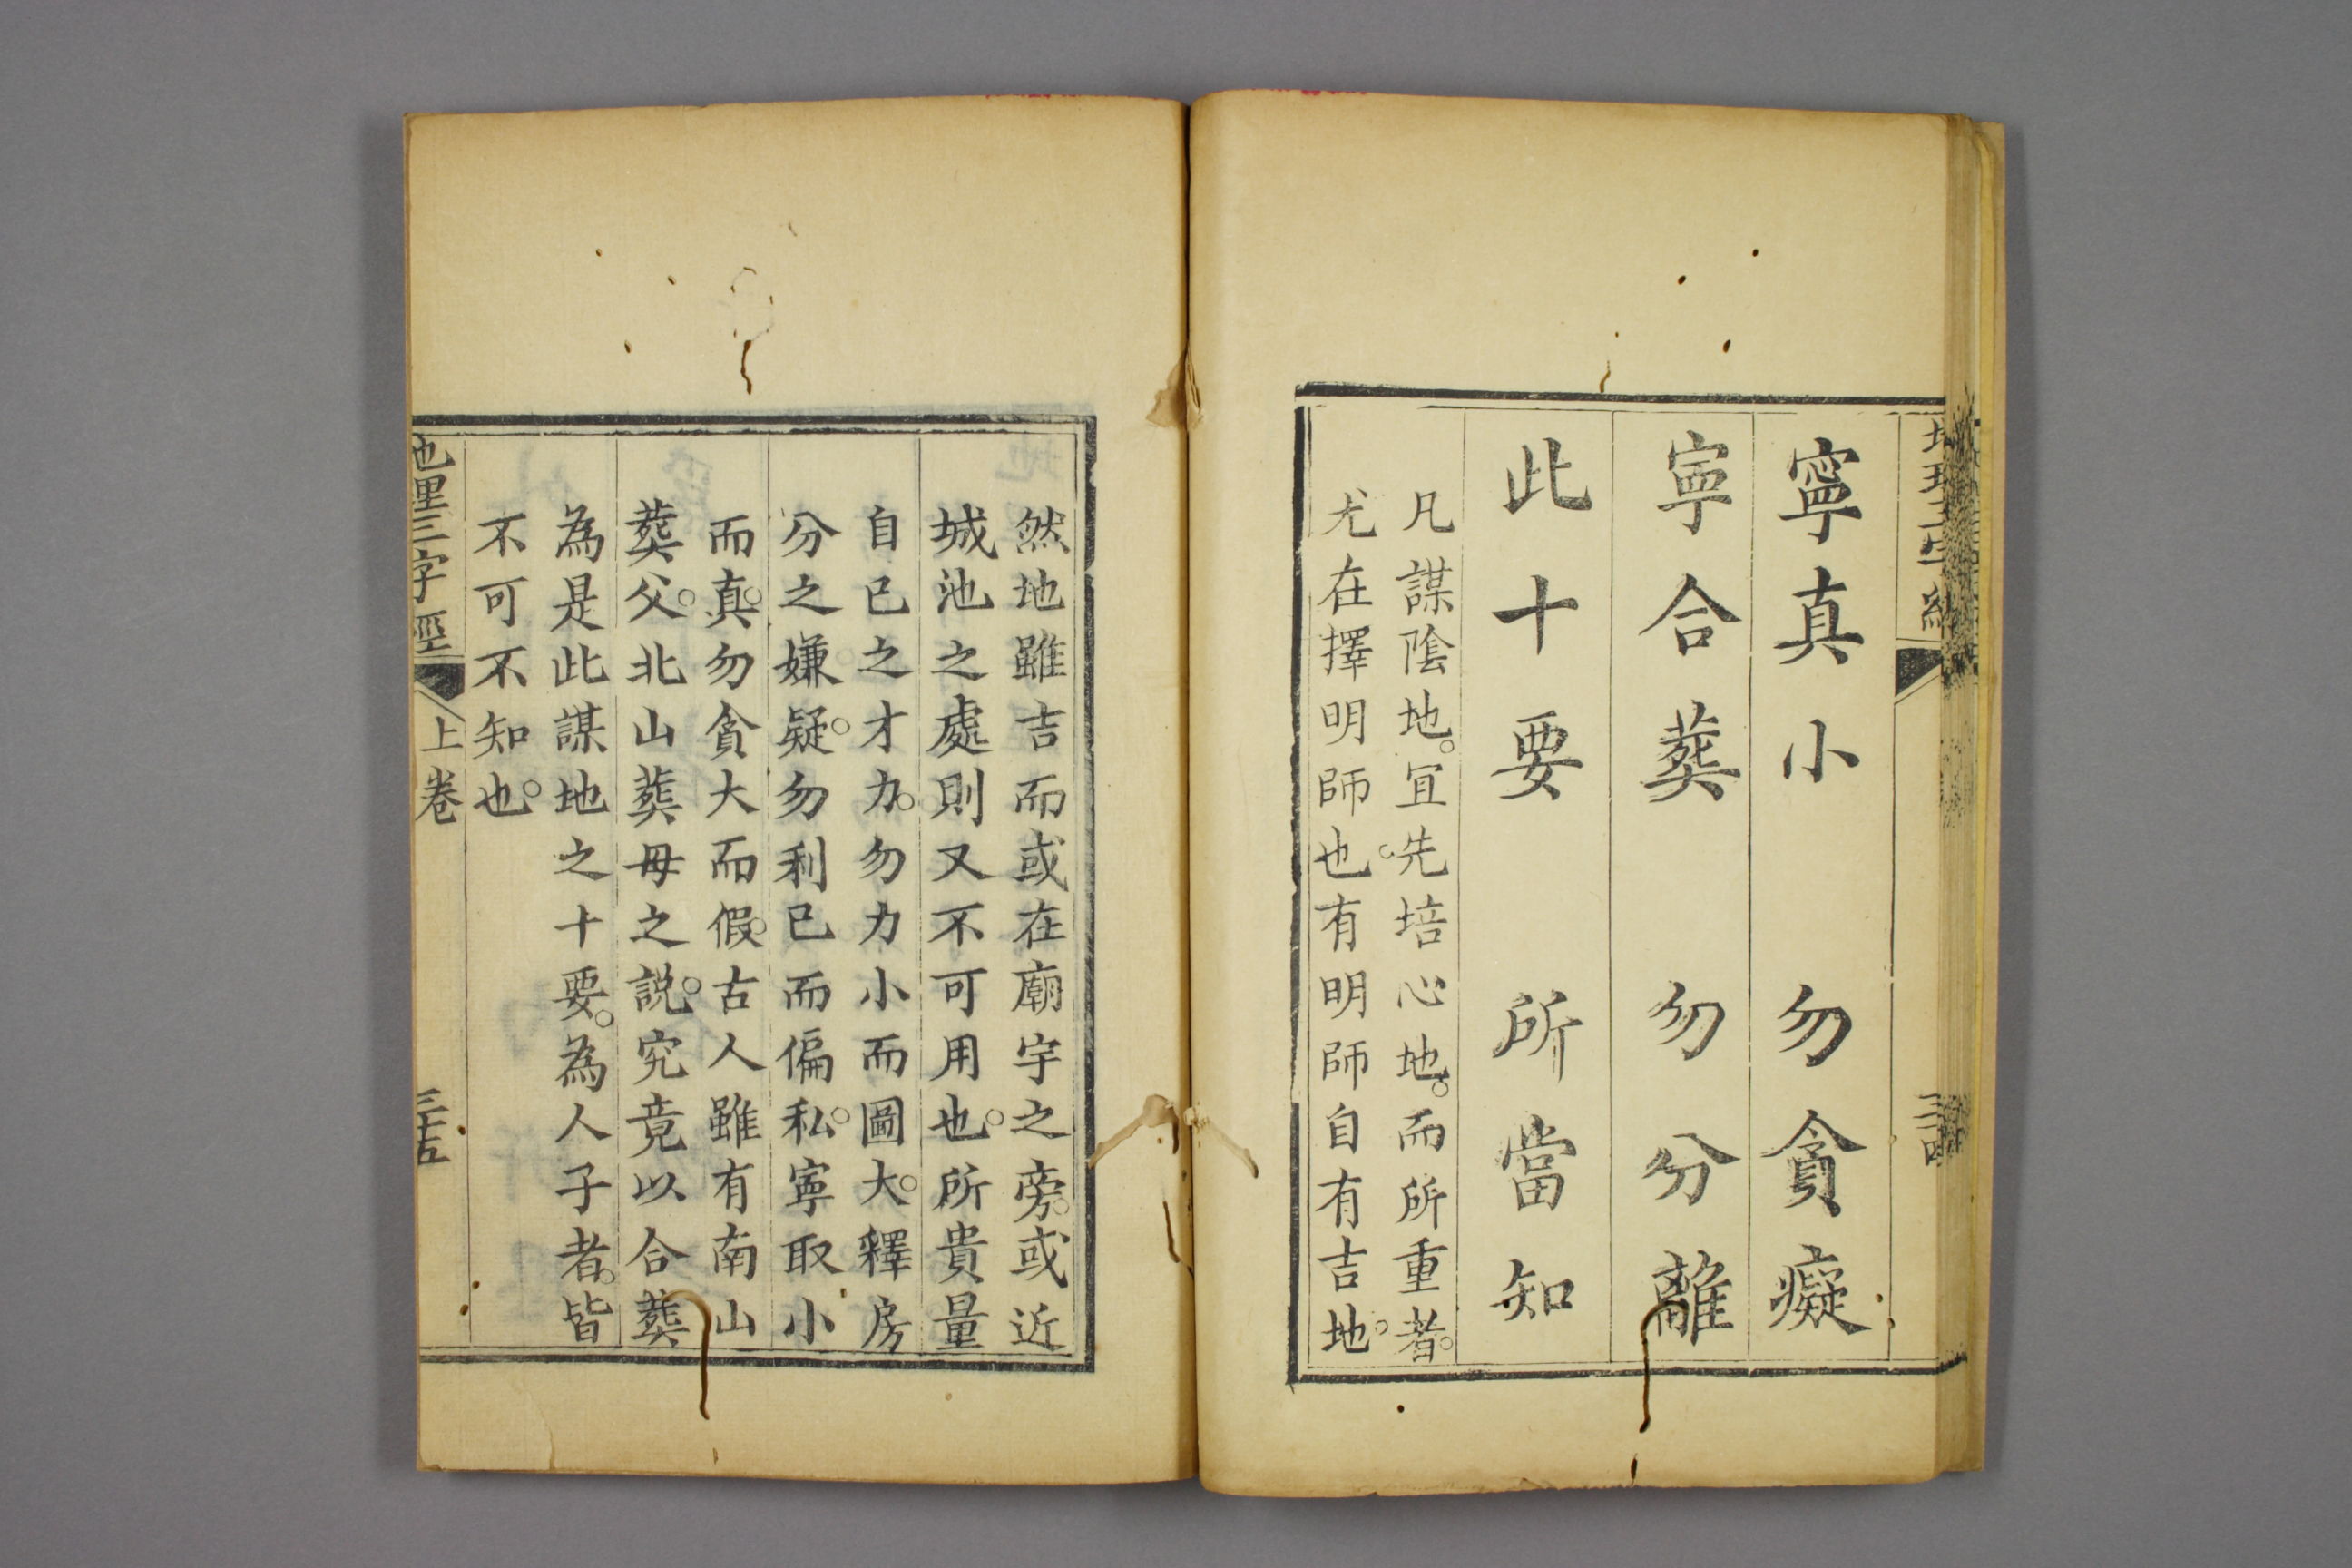 地理三字經
三十四
寧真小　勿貪癡
寧合葬　勿分離
此十要　所當知
凡謀陰地。宜先培心地。而所重者。
尤在擇明師也。有明師自有吉地。
然地雖吉而或在廟宇之旁。或近
城池之處則又不可用也。所貴量
自己之才力。勿力小而圖大。釋房
分之嫌疑。勿利己而偏私。寧取小
而真。勿貪大而假。古人雖有南山
葬父。北山葬母之說。究竟以合葬
為是此謀地之十要。為人子者。皆
不可不知也。
地理三字經
上卷
三十五